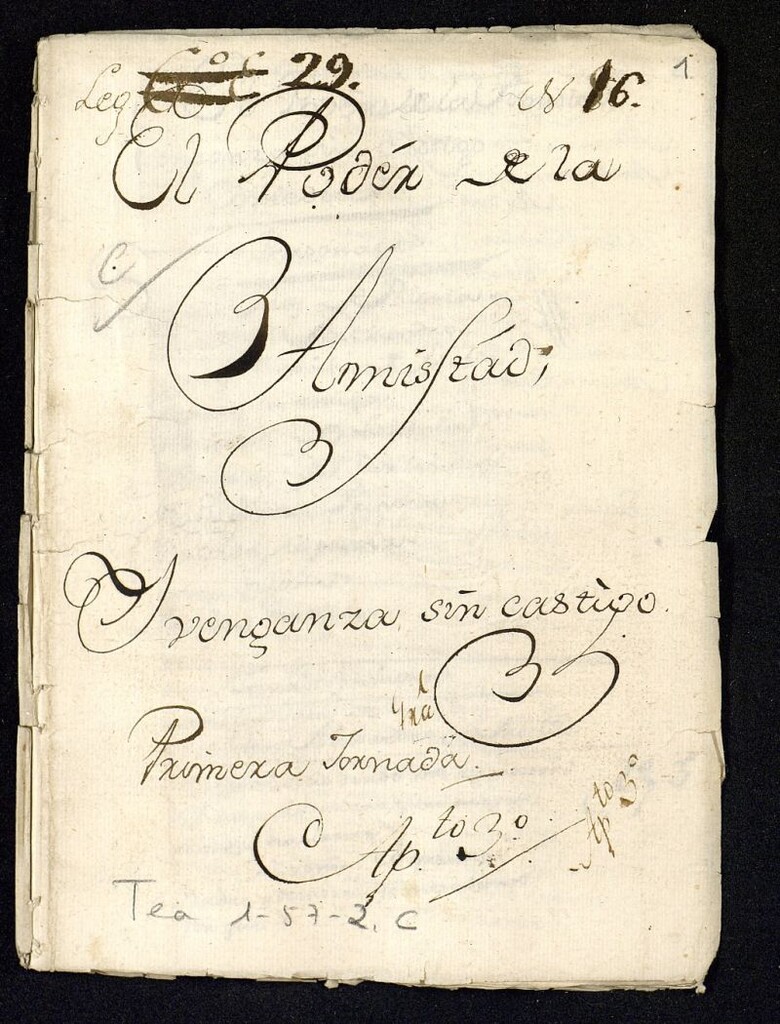 1
Leg. 29. N 16.
El Podér de la
C.
Amistád;
Y venganza sin castigo.
1
Primera Jornada.
Ap.to 3.o
Ap.to 3.o
Tea 1-57-2, C